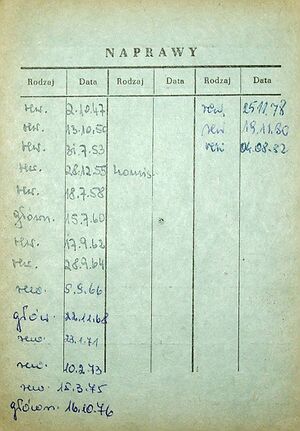 NAPRAWY
Rodzaj Data Rodzaj Data Rodzaj Data
rew. 2.10.47 rew. 25.11.78
rew. 13.10.50 rew. 19.11.80
rew. 31.7.53 rew. 04.08.82
rew. 28.12.55
rew. 18.7.58
główn. 15.7.60
rew. 17.9.62
rew. 28.9.64
rew. 5.9.66
głów. 22.11.68
rew. 23.1.71
rew. 10.2.73
rew. 15.3.75
główn. 16.10.76